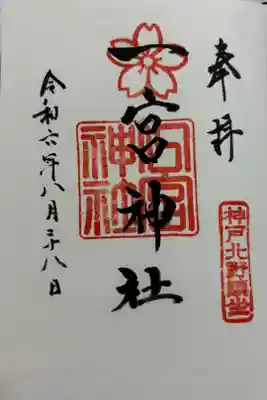 奉拝
神戸北野鎮座
一宮神社
一宮神社
令和六年八月二十八日